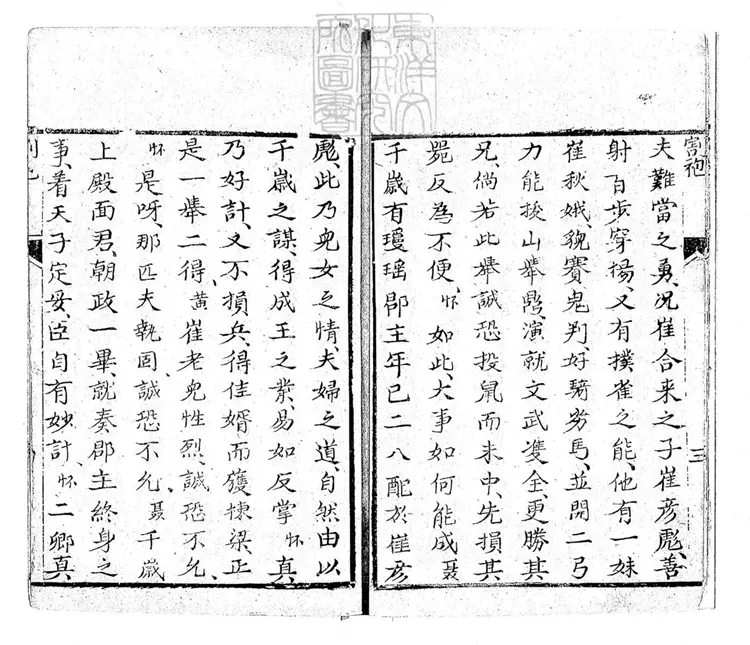 割袍
三
夫難當之勇、况崔合来之子崔彦彪、善
射百步穿揚、又有撲雀之能、他有一妹
崔秋娥、貌賽鬼判、好騎劣馬、並開二弓
力能拔山舉鼎、演就文武双全、更勝其
兄、倘若此舉誠恐投鼠而未中、先損其
毙反為不便 怀 如此、大事如何能成 聂
千歲有瓊瑶郡主年已二八配於崔彦
彪、此乃兒女之情、夫婦之道、自然由以
千歲之謀、得成王之業、易如反掌 怀 真
乃好計、又不損兵、得佳婿而獲棟梁正
是一舉二得、黄 崔老兒性烈、誠恐不允、
怀 是呀、那匹夫執固誠恐不允 聂 千歲
上殿面君、朝政一畢、就奏郡主終身之
事、看天子定妥、臣自有妙計、怀 二卿真
東洋文化研究所圖書